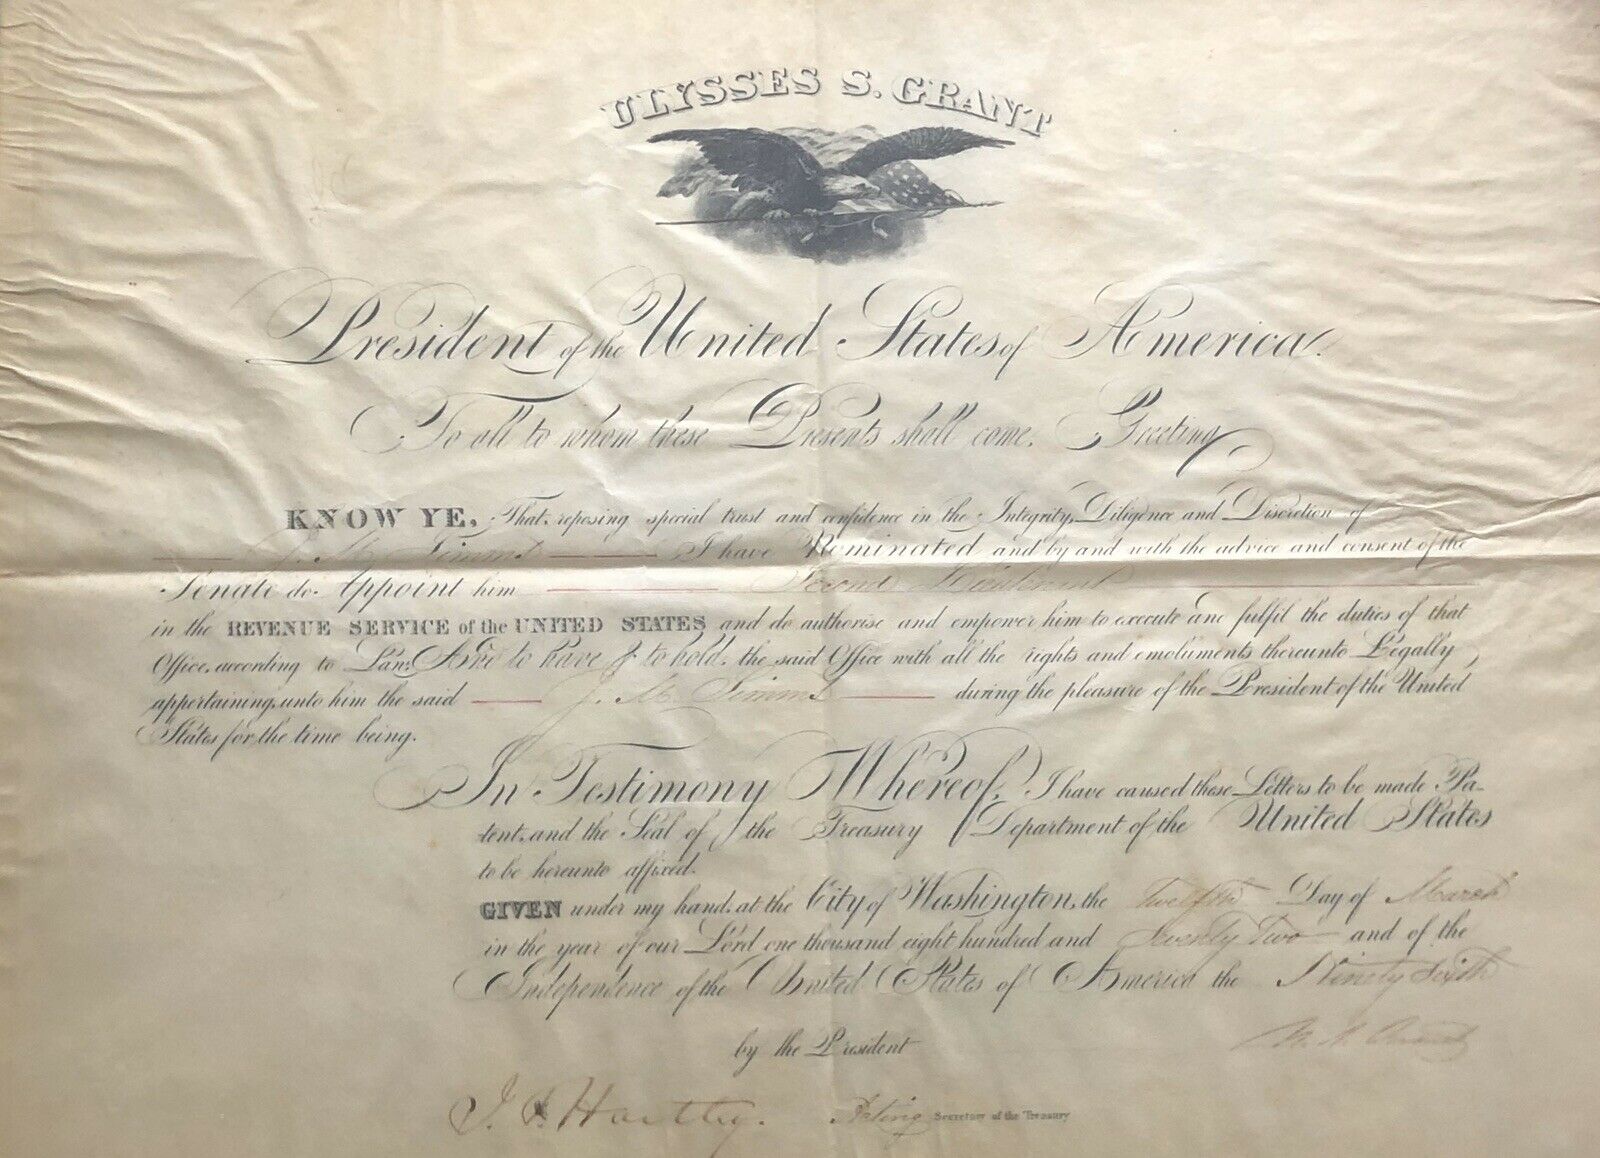 ULYSSES S. GRANT
President of the United States of America.
To all to whom these Presents shall come, Greeting
KNOW YE, That, reposing special trust and confidence in the Integrity, Diligence and Discretion of
J. M. Simms I have Nominated and by and with the advice and consent of the
Senate do Appoint him Second Lieutenant
in the REVENUE SERVICE of the UNITED STATES and do authorise and empower him to execute and fulfil the duties of that
Office, according to Law: And to have & to hold, the said Office with all the rights and emoluments thereunto Legally
appertaining, unto him the said J. M. Simms during the pleasure of the President of the United
States for the time being.
In Testimony Whereof, I have caused these Letters to be made Pa-
tent, and the Seal of the Treasury Department of the United States
to be hereunto affixed.
GIVEN under my hand, at the City of Washington, the Twelfth Day of March
in the year of our Lord one thousand eight hundred and Seventy Two and of the
Independence of the United States of America the Ninety Sixth
by the President
U. S. Grant
J. F. Hartley. Acting Secretary of the Treasury